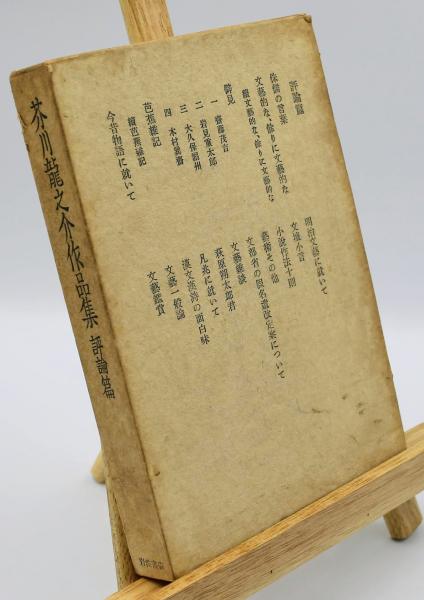 芥川龍之介作品集 評論篇
岩波書店
評論篇
侏儒の言葉
文藝的な、餘りに文藝的な
續文藝的な、餘りに文藝的な
僻見
一 齋藤茂吉
二 岩見重太郎
三 大久保湖州
四 木村巽齋
芭蕉雜記
續芭蕉雜記
今昔物語に就いて
明治文藝に就いて
文壇小言
小説作法十則
藝術その他
文部省の假名遣改定案について
文藝雜談
萩原朔太郎君
凡兆に就いて
漢文漢詩の面白味
文藝一般論
文藝鑑賞